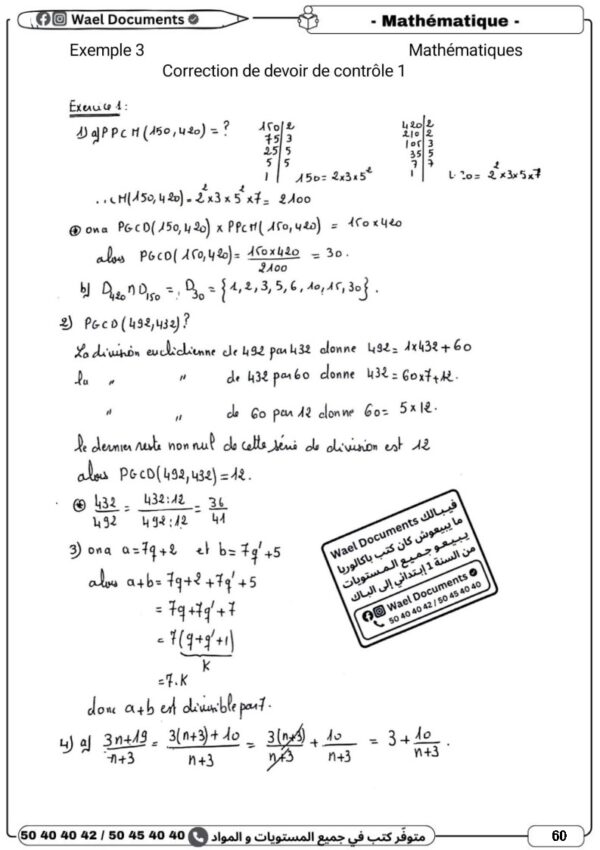 Wael Documents
- Mathématique -
Exemple 3 Mathématiques
Correction de devoir de contrôle 1
Exercice 1 :
1) a) PPCM(150,420) = ?
150 | 2
75 | 3
25 | 5
5 | 5
1 |
150 = 2×3×5²
420 | 2
210 | 2
105 | 3
35 | 5
7 | 7
1 |
20 = 2²×3×5×7
CM(150,420) = 2²×3×5²×7 = 2100
⊛ ona PGCD(150,420) × PPCM(150,420) = 150×420
alors PGCD(150,420) = 150×420/2100 = 30.
b) D₄₂₀ ∩ D₁₅₀ = D₃₀ = {1,2,3,5,6,10,15,30}.
2) PGCD(492,432)?
La division euclidienne de 492 par 432 donne 492 = 1×432+60
la " " de 432 par 60 donne 432 = 60×7+12.
" " de 60 par 12 donne 60 = 5×12.
le dernier reste non nul de cette série de division est 12
alors PGCD(492,432) = 12.
⊛ 432/492 = 432:12/492:12 = 36/41
3) ona a = 7q+2 et b = 7q'+5
alors a+b = 7q+2+7q'+5
= 7q+7q'+7
= 7(q+q'+1)
K
= 7.K
donc a+b est divisible par 7.
4) a) 3n+19/n+3 = 3(n+3)+10/n+3 = 3(n+3)/n+3 + 10/n+3 = 3 + 10/n+3.
فيبالك Wael Documents
ما يبيعوش كان كتب باكالوريا
يبيعو جميع المستويات
من السنة 1 إبتدائي إلى الباك
Wael Documents
50 40 40 42 / 50 45 40 40
50 40 40 42 / 50 45 40 40 متوفّر كتب في جميع المستويات و المواد
60